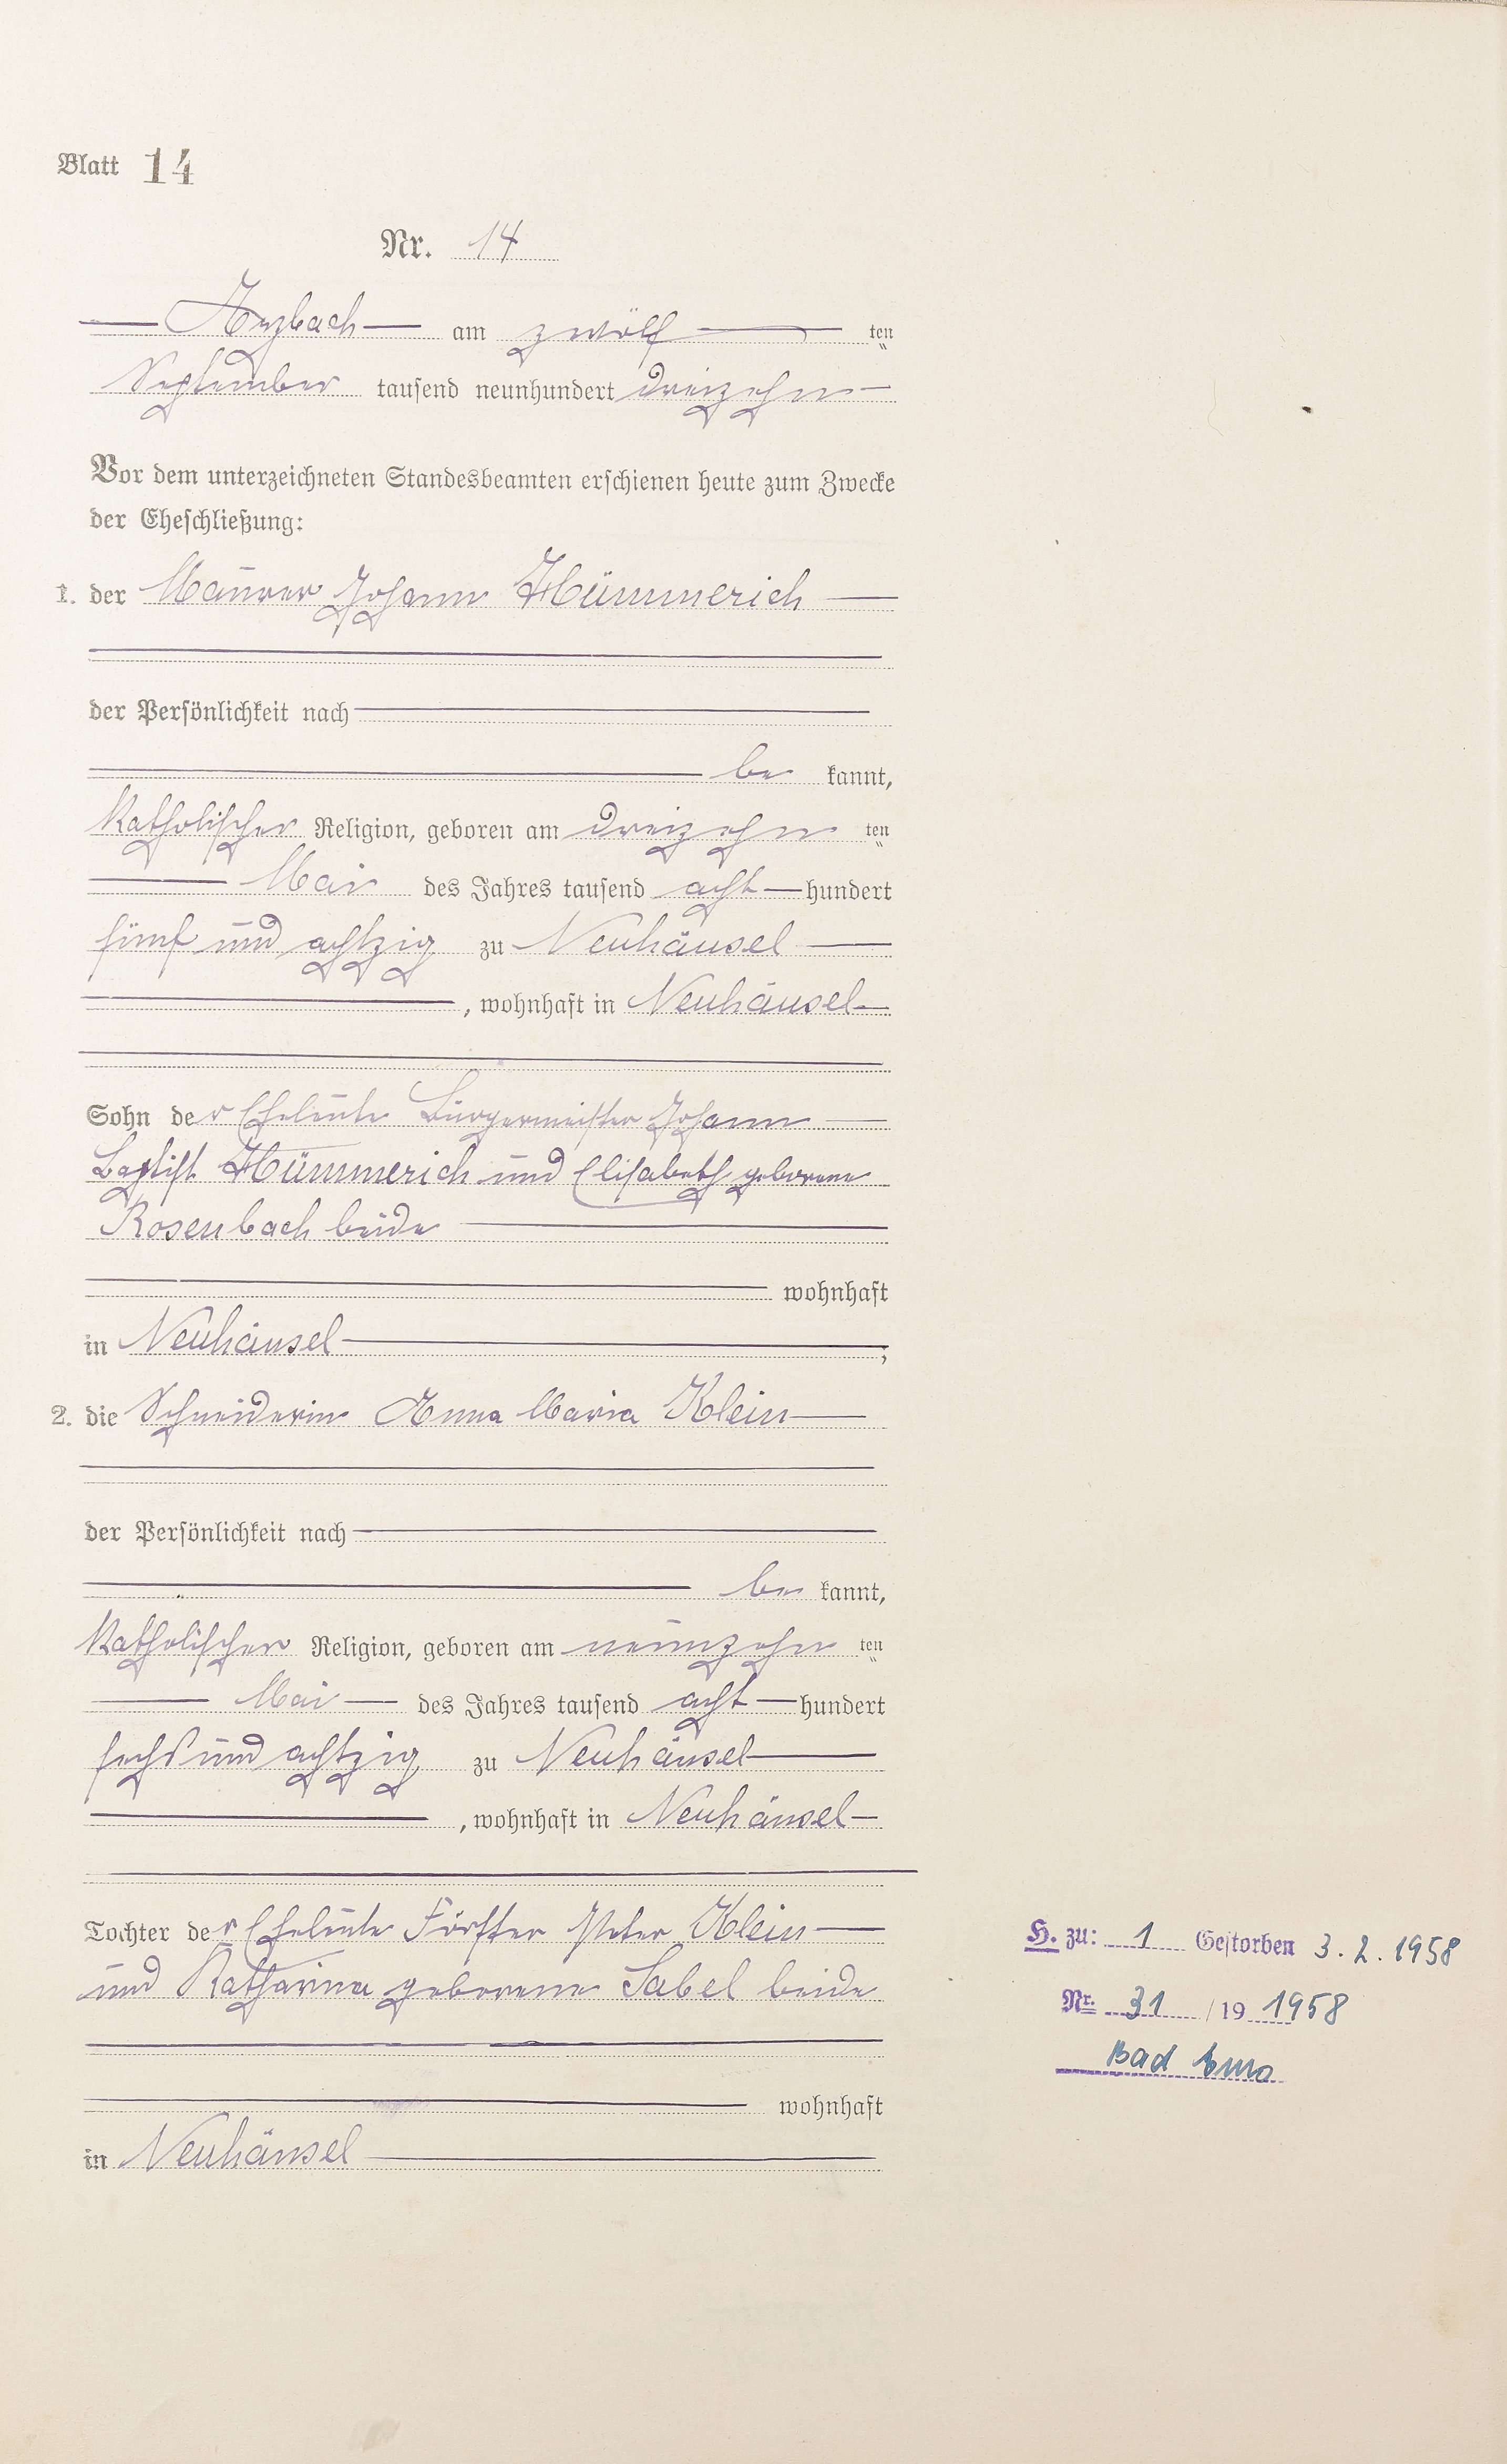 Blatt 14
Nr. 14
Arzbach am zwölf ten
September tausend neunhundert dreizehn
Vor dem unterzeichneten Standesbeamten erschienen heute zum Zwecke
der Eheschließung:
1. der Maurer Johann Hümmerich
der Persönlichkeit nach
be kannt,
Katholischer Religion, geboren am dreizehn ten
Mai des Jahres tausend acht hundert
fünf und achtzig zu Neuhäusel
, wohnhaft in Neuhäusel
Sohn der Eheleute Bürgermeister Johann
Baptist Hümmerich und Elisabeth geborene
Rosenbach beide
wohnhaft
in Neuhäusel ;
2. die Schneiderin Anna Maria Klein
der Persönlichkeit nach
be kannt,
Katholischer Religion, geboren am neunzehn ten
Mai des Jahres tausend acht hundert
sechs und achtzig zu Neuhäusel
, wohnhaft in Neuhäusel
Tochter der Eheleute Förster Peter Klein
und Katharina geborene Sabel beide
wohnhaft
in Neuhäusel
H. zu: 1 Gestorben 3.2.1958
Nr. 31 /19 1958
Bad Ems